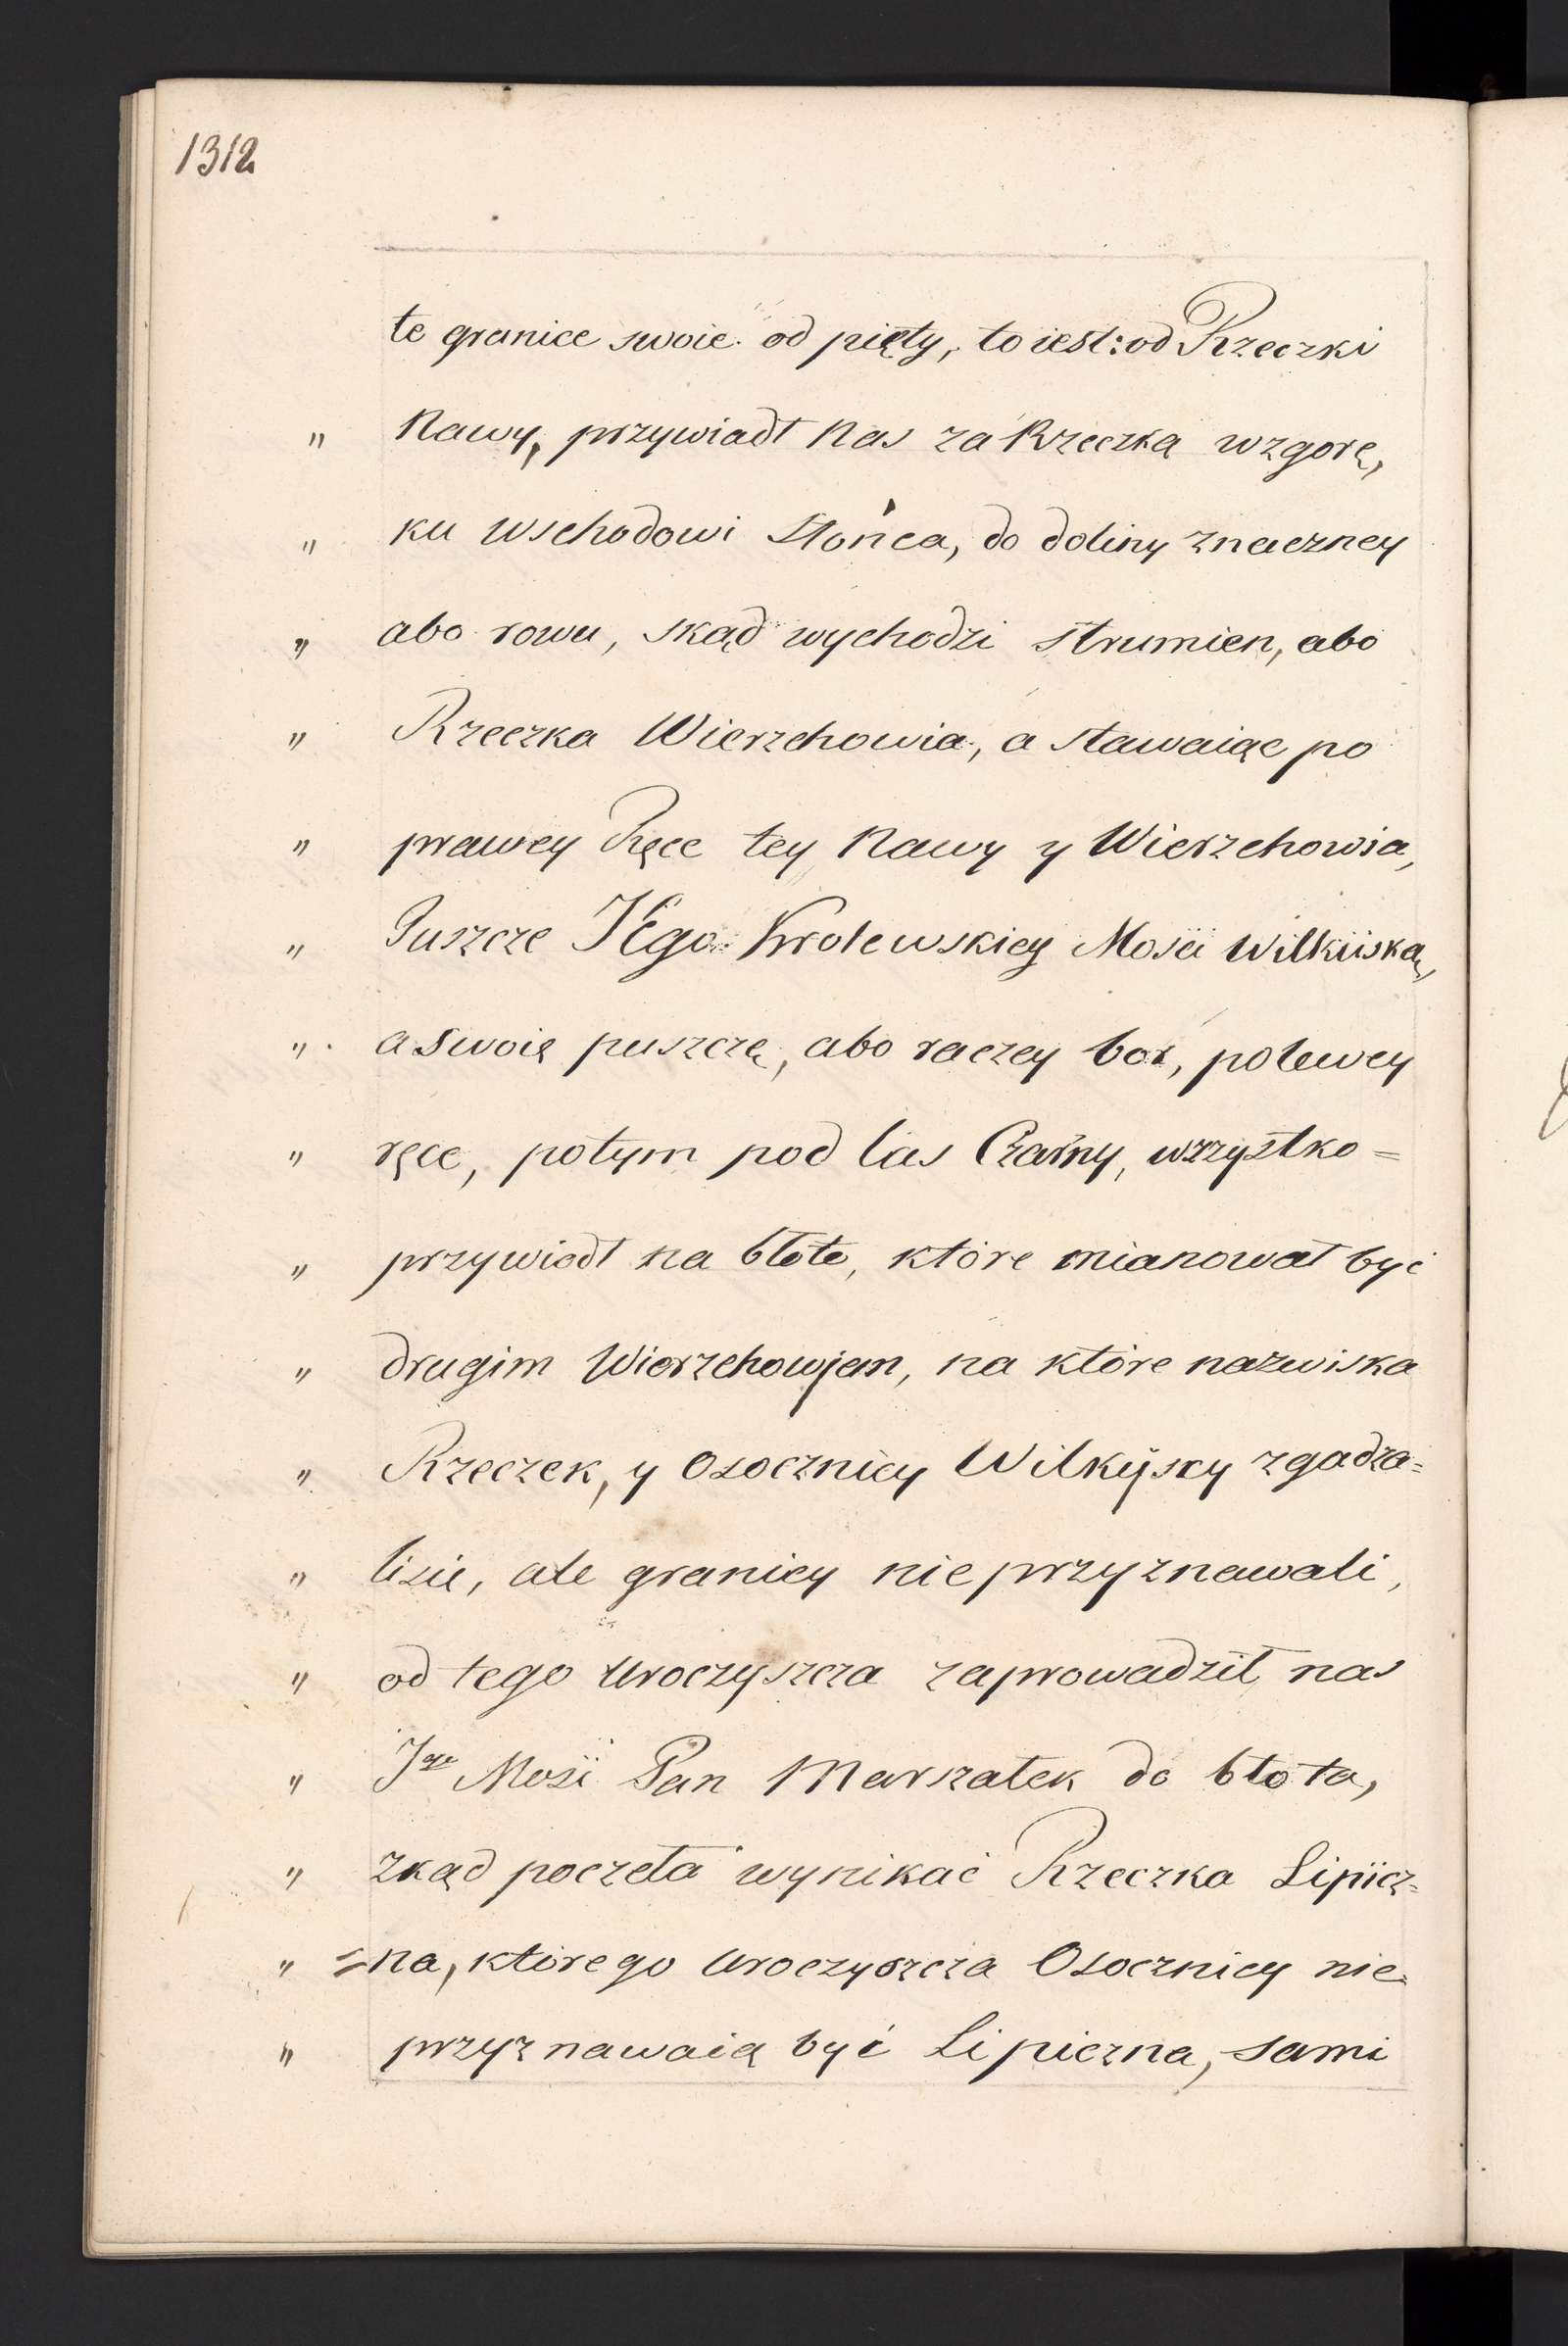 1312
te granice swoie od pięty, to iest: od Rzeczki
„ Nawy, przywiadł nas za Rzeczką wzgorę,
„ ku wschodowi Słońca, do doliny znaczney
„ abo rowu, skąd wychodzi strumien, abo
„ Rzeczka Wierzchowia, a stawaiąc po
„ prawey Ręce tey Nawy y Wierzchowia,
„ Puszcze Jego Krolewskiey Mosci Wilkiiską,
„ a swoię puszczę, abo raczey bor, polewey
„ ręce, potym pod las Czarny, wszystko=
„ przywiodł na błoto, ktore mianował być
„ drugim Wierzchowjem, na ktore nazwiska
„ Rzeczek, y Osocznicy Wilkijscy zgadza=
„ lisie, ale granicy nie przyznawali,
„ od tego Uroczyszcza zaprowadził nas
„ Jgo Mosi Pan Marszałek do błota,
„ zkąd poczeła wynikać Rzeczka Lipicz=
„ =na, ktorego Uroczyszcza Osocznicy nie
„ przyznawaią być Lipiczna, sami